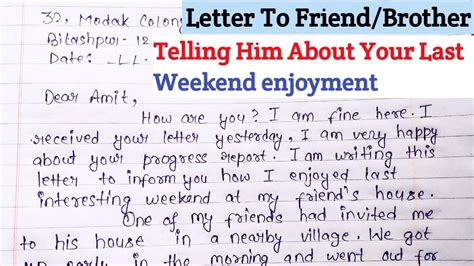 32, Modak Colon
Letter To Friend/Brother
Bilashpur - 12
Telling Him About Your Last
Date: _LL.
Weekend enjoyment
Dear Amit,
How are you? I am fine here. I
received your letter yesterday, I am very happy
about your progress report. I am writing this
letter to inform you how I enjoyed last
interesting weekend at my friend's house.
One of my friends had invited me
to his house in a nearby village. We got
up early in the morning and went out for